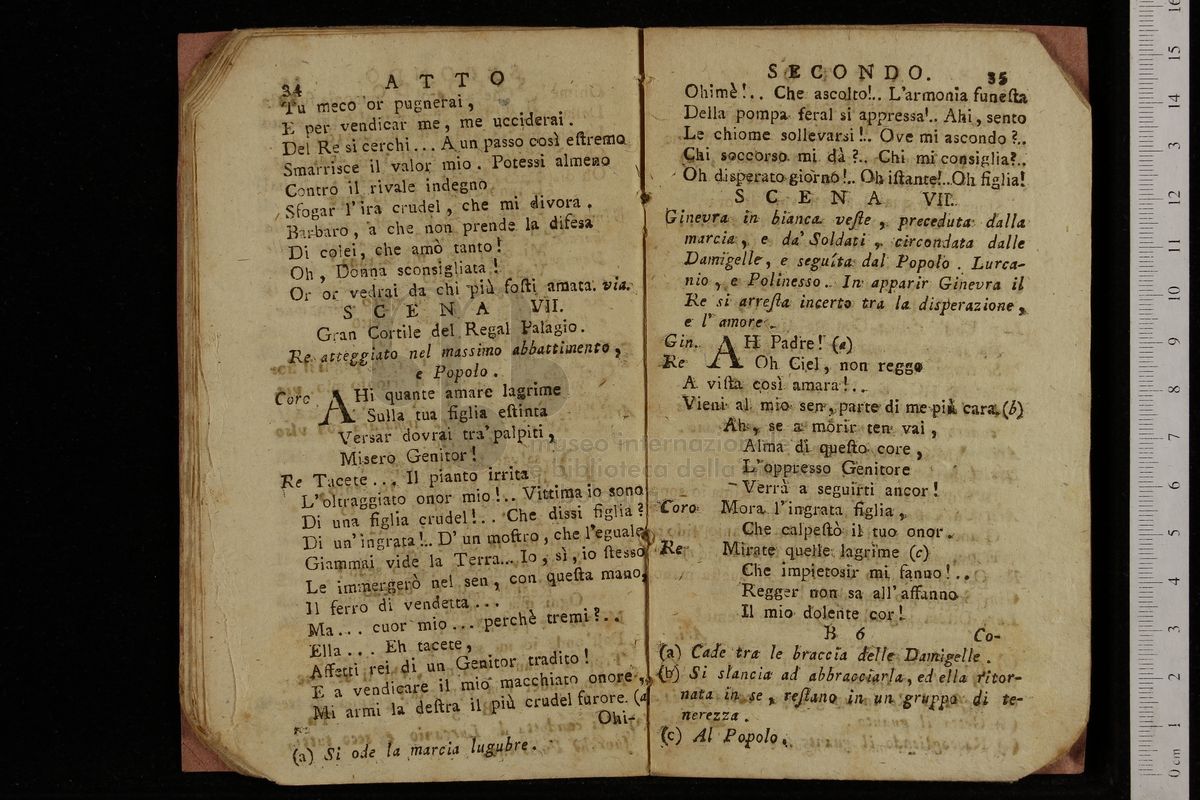 34 ATTO
Tu meco or pugnerai,
E per vendicar me, me ucciderai.
Del Re si cerchi... A un passo così eſtremo
Smarrisce il valor mio. Potessi almeno
Contro il rivale indegno
Sfogar l'ira crudel, che mi divora.
Barbaro, a che non prende la difesa
Di colei, che amò tanto!
Oh, Donna sconsigliata!
Or or vedrai da chi più foſti amata. via.
SCENA VII.
Gran Cortile del Regal Palagio.
Re atteggiato nel massimo abbattimento,
e Popolo.
Coro AHi quante amare lagrime
Sulla tua figlia eſtinta
Versar dovrai tra' palpiti,
Misero Genitor!
Re Tacete... Il pianto irrita
L'oltraggiato onor mio!.. Vittima io sono
Di una figlia crudel!.. Che dissi figlia?
Di un'ingrata!.. D'un moſtro, che l'eguale
Giammai vide la Terra... Io, sì, io ſtesso
Le immergerò nel sen, con queſta mano,
Il ferro di vendetta...
Ma... cuor mio... perchè tremi?..
Ella... Eh tacete,
Affetti rei di un Genitor tradito!
E a vendicare il mio macchiato onore,
Mi armi la deſtra il più crudel furore. (a
Ohi-
(a) Si ode la marcia lugubre.
SECONDO. 35
Ohimè!.. Che ascolto!.. L'armonia funeſta
Della pompa feral si appressa!.. Ahi, sento
Le chiome sollevarsi!.. Ove mi ascondo?..
Chi soccorso mi dà?.. Chi mi consiglia?..
Oh disperato giorno!.. Oh iſtante!..Oh figlia!
SCENA VII.
Ginevra in bianca veſte, preceduta dalla
marcia, e da' Soldati, circondata dalle
Damigelle, e seguita dal Popolo. Lurca-
nio, e Polinesso. In apparir Ginevra il
Re si arreſta incerto tra la disperazione,
e l'amore.
Gin. AH Padre! (a)
Re Oh Ciel, non reggo
A viſta così amara!..
Vieni al mio sen, parte di me più cara. (b)
Ah, se a morir ten vai,
Alma di queſto core,
L'oppresso Genitore
Verrà a seguirti ancor!
Coro Mora l'ingrata figlia,
Che calpeſtò il tuo onor.
Re Mirate quelle lagrime (c)
Che impietosir mi fanno!..
Regger non sa all'affanno
Il mio dolente cor!
B 6 Co-
(a) Cade tra le braccia delle Damigelle.
(b) Si slancia ad abbracciarla, ed ella ritor-
nata in se, reſtano in un gruppo di te-
nerezza.
(c) Al Popolo.
museo internazionale
e biblioteca della
0 cm 1 2 3 4 5 6 7 8 9 10 11 12 13 14 15 16